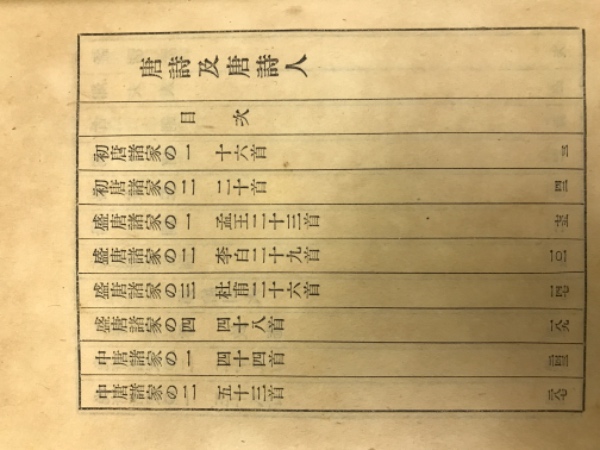 唐詩及唐詩人
目次
初唐諸家の一 十六首 三
初唐諸家の二 二十首 四三
盛唐諸家の一 孟王二十三首 七五
盛唐諸家の二 李白二十九首 一〇一
盛唐諸家の三 杜甫二十六首 一四七
盛唐諸家の四 四十八首 一八九
中唐諸家の一 四十四首
中唐諸家の二 五十三首